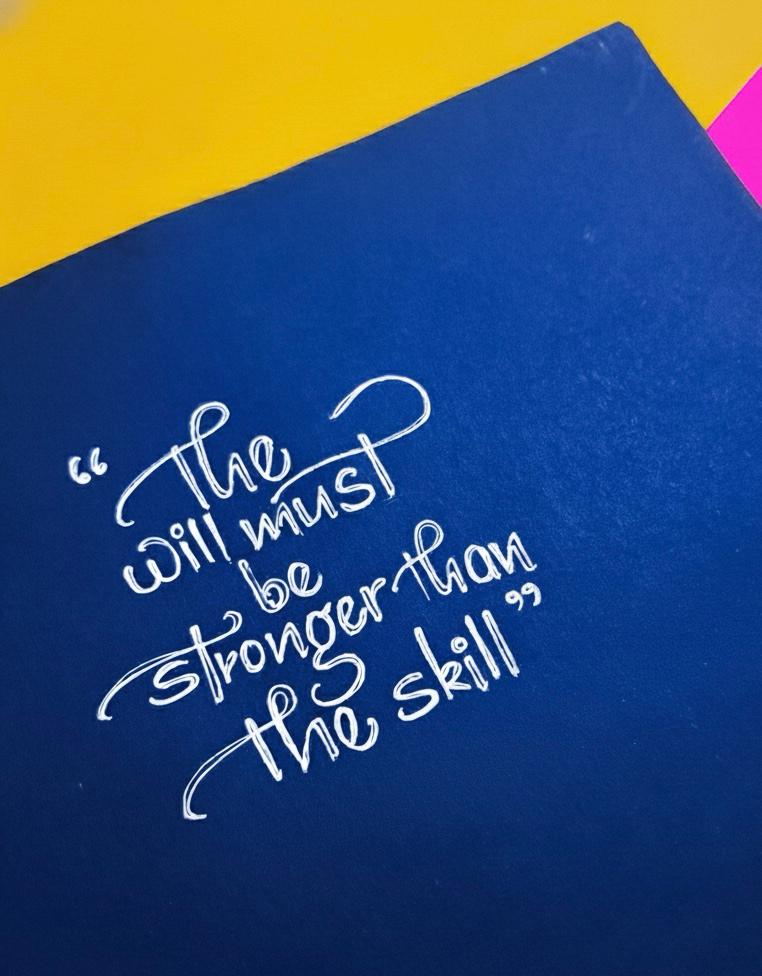 “The
will must
be
stronger than
the skill”